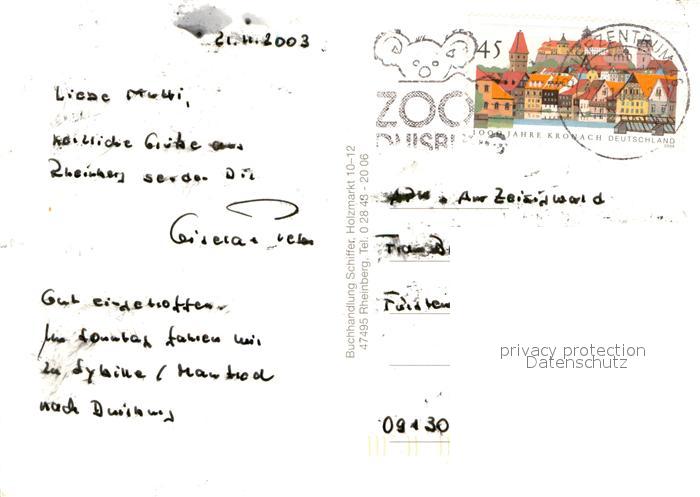 21.11.2003
Liebe Mutti,
herzliche Grüße aus
Rheinberg senden Dir
Gisela + Peter
Gut eingetroffen.
Am Sonntag fahren wir
zu Sybille / Manfred
nach Duisburg
Buchhandlung Schiffer, Holzmarkt 10–12
47495 Rheinberg, Tel. 0 28 43 - 20 06
ZOO
DUISBU
45
1000 JAHRE KRONACH DEUTSCHLAND
ZENTRUM
APH . Am Zeisigwald
Frau B
Fürsten
09130
privacy protection
Datenschutz